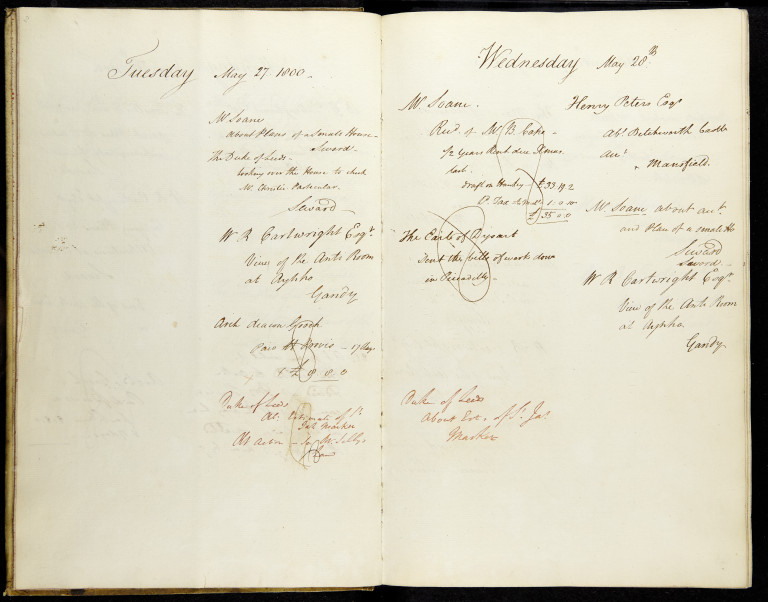 Tuesday May 27. 1800 -
Mr Soane
about Plans of a Small House -
Seward.
The Duke of Leeds -
looking over the House to check
Mr. Christie Particular.
Seward
W R Cartwright Esqr.
View of the Anti Room
at Aynho
Gandy
Arch deacon Gooch
- 17 Days
£ 9 0. 0
Duke of Leeds
Abt. Estimate of St
Jas Market
Wednesday May 28th
Mr. Soane.
Recd of Mr B. Coke -
1/2 Years Rent due Xmas
last.
Draft on Hanbey - £33 19 2
P. Tax 1. 0. 10
£ 35. 0. 0
The Earl of Dysart
Sent the bills of work done
in Piccadilly -
Duke of Leeds
About Est. of St. Jas.
Market
Henry Peters Esqr
Abt. Betchworth Castle
Mansfield.
Mr Soane about
and Plan of a small Ho
Seward
Seward -
W R Cartwright Esqr.
View of the Anti Room
at Aynho.
Gandy